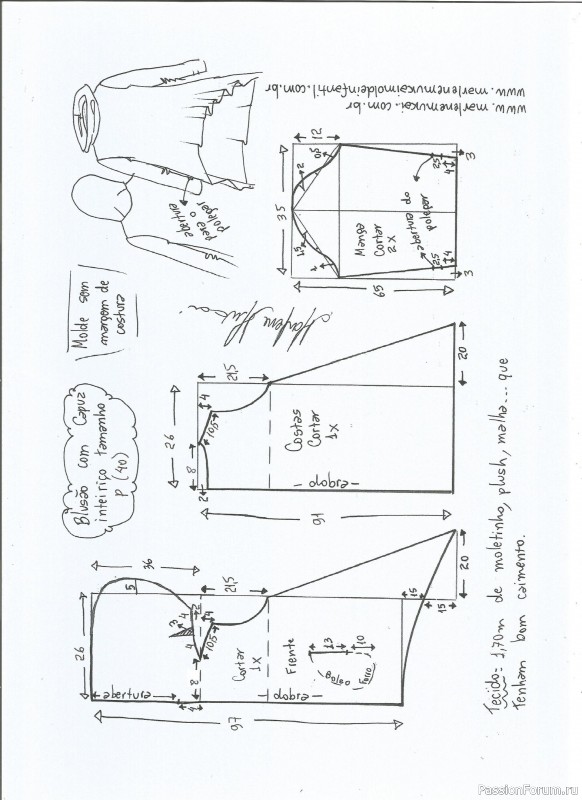 Blusão com Capuz
inteiriço tamanho
P (40)
Molde sem
margem de
costura
abertura
para o
polegar
www.marlenemukai.com.br
www.marlenemukaimoldeinfantil.com.br
Marlene Mukai
36
5
26
abertura
4
8
4
3
4
2
10,5
21,5
Cortar
1x
Frente
dobra
13
10
Bolso
Forro
15
15
20
97
26
8
2
4
10,5
21,5
Costas
Cortar
1x
dobra
20
91
35
12
1,5
2
2
0,5
Manga
Cortar
2x
abertura do
polegar
2,5
4
3
2,5
4
3
65
Tecido = 1,70m de moletinho, plush, malha... que
Tenham bom caimento.
PassionForum.ru